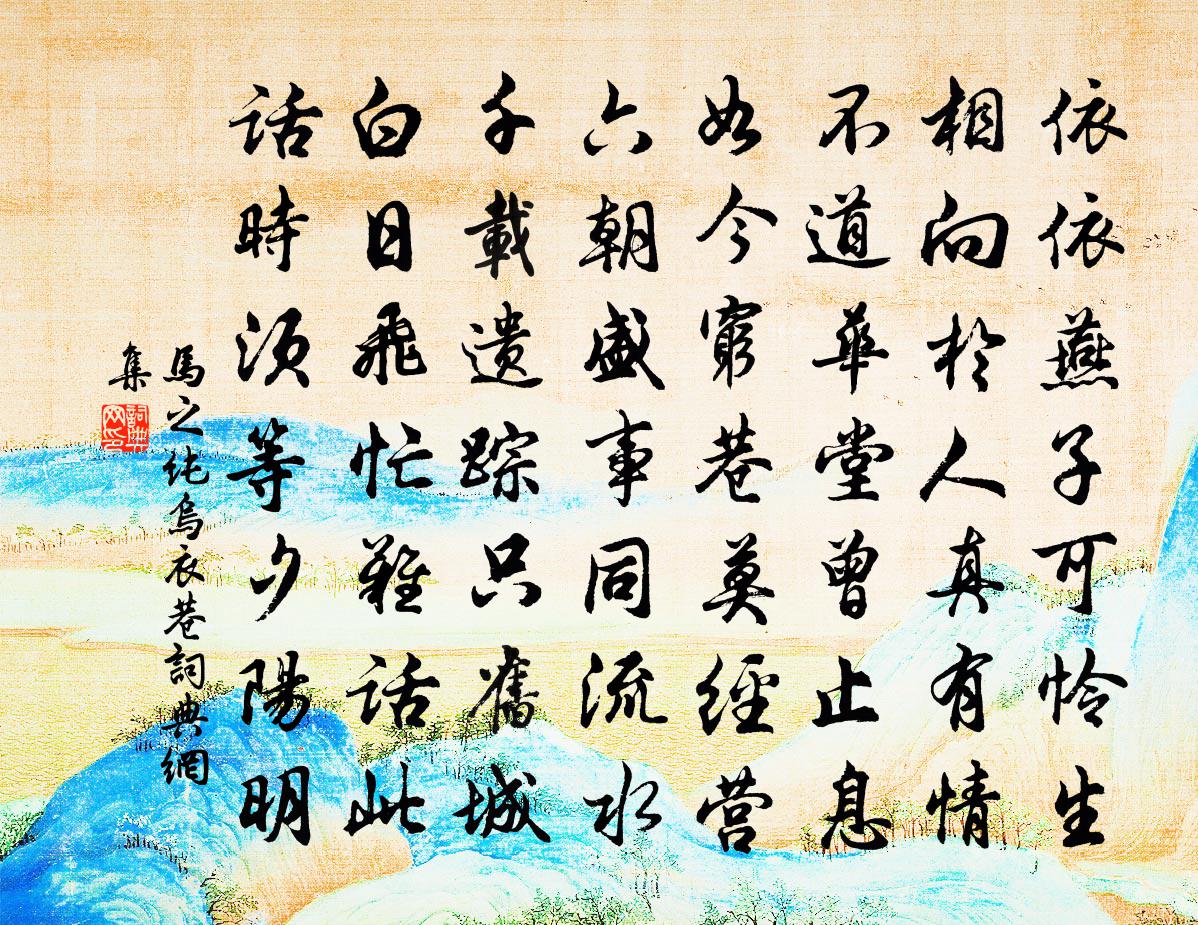 依依燕子可怜生
相向於人真有情
不道華堂曾止息
如今窮巷莫經营
六朝盛事同流水
千載遗踪只舊城
白日飛忙難話此
話時须等夕陽明
馬之纯烏衣巷詞典網
集
詞典
网